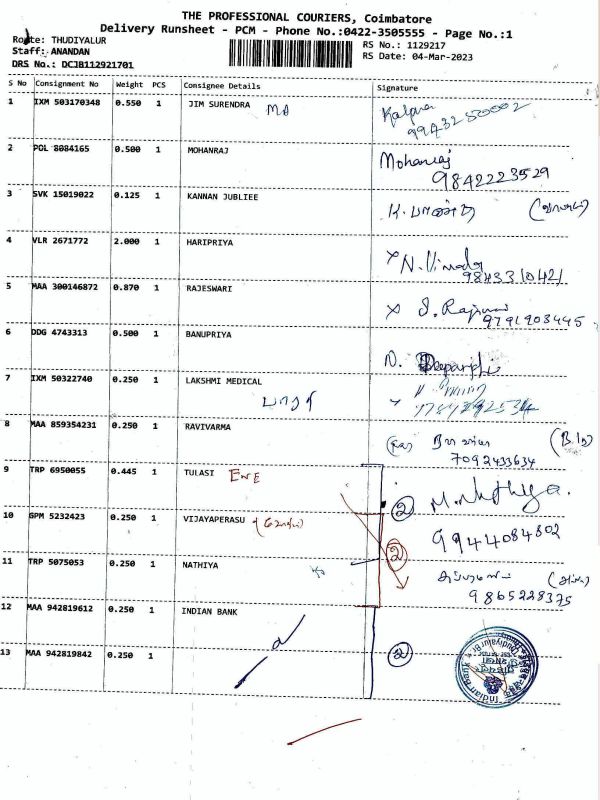 THE PROFESSIONAL COURIERS, Coimbatore
Delivery Runsheet - PCM - Phone No.:0422-3505555 - Page No.:1
Route: THUDIYALUR
Staff: ANANDAN
DRS No.: DCJB112921701
RS No.: 1129217
RS Date: 04-Mar-2023
S No Consignment No Weight PCS Consignee Details Signature
1 IXM 503170348 0.550 1 JIM SURENDRA
Kalpna
9943250002
2 POL 8084165 0.500 1 MOHANRAJ Mohanraj
9842223529
3 SVK 15019022 0.125 1 KANNAN JUBLIEE
4 VLR 2671772 2.000 1 HARIPRIYA
9843310421
5 MAA 300146872 0.870 1 RAJESWARI
9791903445
6 DDG 4743313 0.500 1 BANUPRIYA
7 IXM 50322740 0.250 1 LAKSHMI MEDICAL
8 MAA 859354231 0.250 1 RAVIVARMA
7092433634
9 TRP 6950055 0.445 1 TULASI
② M. Nithya.
10 SPM 5232423 0.250 1 VIJAYAPERASU
9944084802
②
11 TRP 5075053 0.250 1 NATHIYA
9865228375
12 MAA 942819612 0.250 1 INDIAN BANK
13 MAA 942819842 0.250 1
②